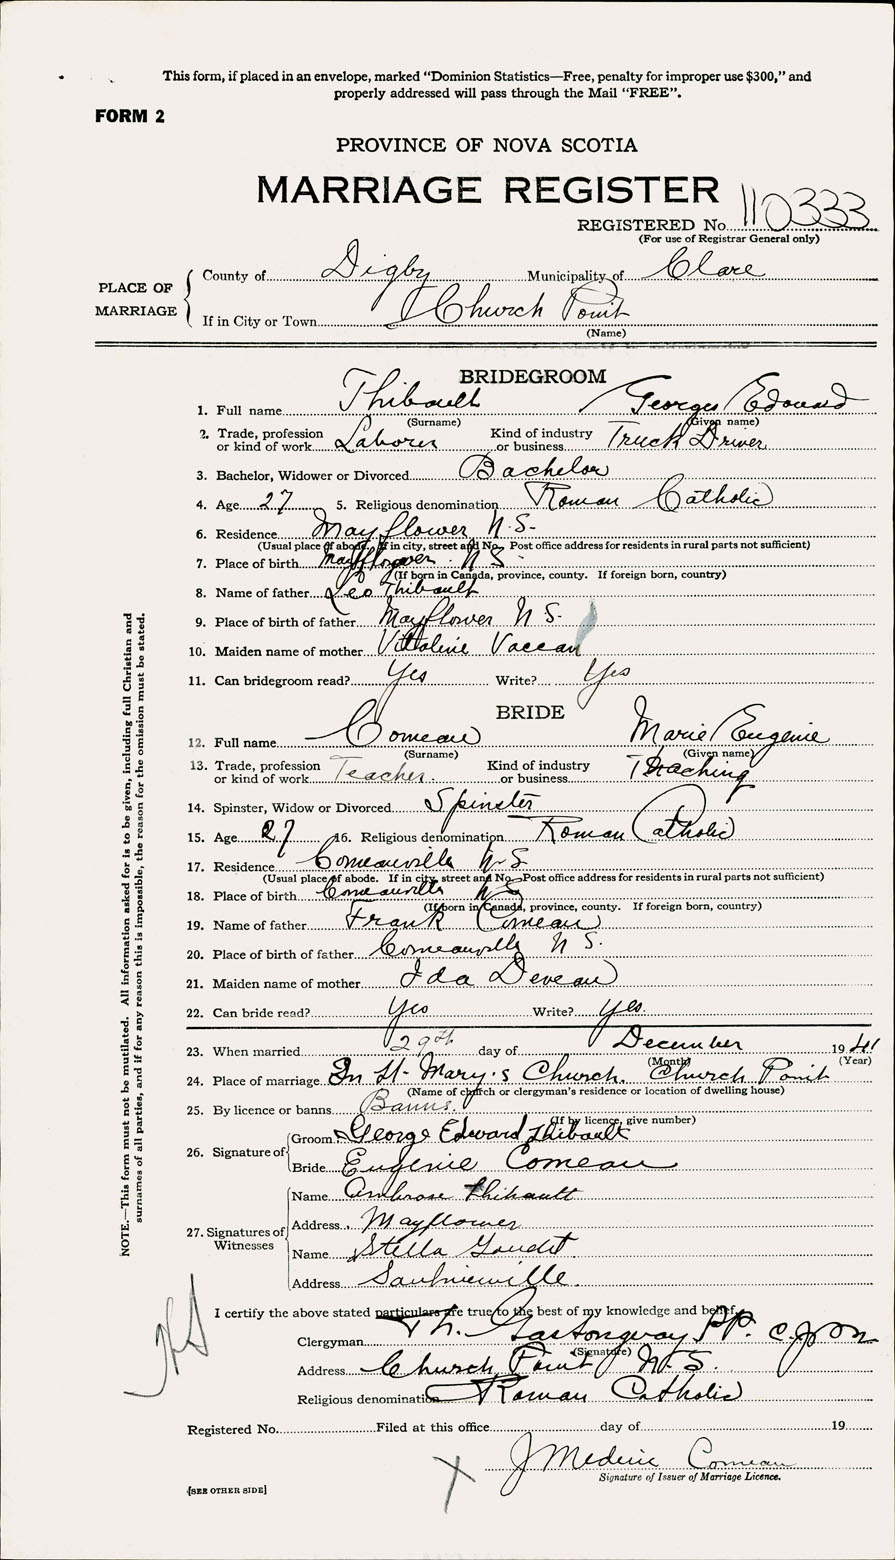 This form, if placed in an envelope, marked “Dominion Statistics—Free, penalty for improper use $300,” and
properly addressed will pass through the Mail “FREE”.
FORM 2
PROVINCE OF NOVA SCOTIA
MARRIAGE REGISTER
REGISTERED No. 110333
(For use of Registrar General only)
PLACE OF MARRIAGE
County of Digby Municipality of Clare
If in City or Town Church Point
(Name)
BRIDEGROOM
1. Full name Thibault Georges Edouard
(Surname) (Given name)
2. Trade, profession or kind of work Laborer Kind of industry or business Truck Driver
3. Bachelor, Widower or Divorced Bachelor
4. Age 27 5. Religious denomination Roman Catholic
6. Residence Mayflower N.S.
(Usual place of abode. If in city, street and No. Post office address for residents in rural parts not sufficient)
7. Place of birth Mayflower N S
(If born in Canada, province, county. If foreign born, country)
8. Name of father Leo Thibault
9. Place of birth of father Mayflower N S.
10. Maiden name of mother Vaccan
11. Can bridegroom read? Yes Write? Yes
BRIDE
12. Full name Comeau Marie Eugenie
(Surname) (Given name)
13. Trade, profession or kind of work Teacher. Kind of industry or business Teaching
14. Spinster, Widow or Divorced Spinster
15. Age 27 16. Religious denomination Roman Catholic
17. Residence Comeauville N.S
(Usual place of abode. If in city, street and No. Post office address for residents in rural parts not sufficient)
18. Place of birth Comeauville N S
(If born in Canada, province, county. If foreign born, country)
19. Name of father Frank Comeau
20. Place of birth of father Comeauville N S.
21. Maiden name of mother Ida Deveau
22. Can bride read? Yes Write? Yes.
23. When married 29th day of December 1941
(Month) (Year)
24. Place of marriage In St-Mary's Church. Church Point
(Name of church or clergyman's residence or location of dwelling house)
25. By licence or banns Banns.
(If by licence, give number)
26. Signature of
Groom George Edward Thibault
Bride Eugenie Comeau
27. Signatures of Witnesses
Name Ambrose Thibault
Address Mayflower
Name Stella Gaudet
Address Saulnierville
I certify the above stated particulars are true to the best of my knowledge and belief.
Clergyman Th. Gastonguay PP. c.j.m
(Signature)
Address Church Point N.S.
Religious denomination Roman Catholic
Registered No. Filed at this office day of 19
J Mederie Comeau
Signature of Issuer of Marriage Licence.
[SEE OTHER SIDE]
NOTE.—This form must not be mutilated. All information asked for is to be given, including full Christian and
surnames of all parties, and if for any reason this is impossible, the reason for the omission must be stated.